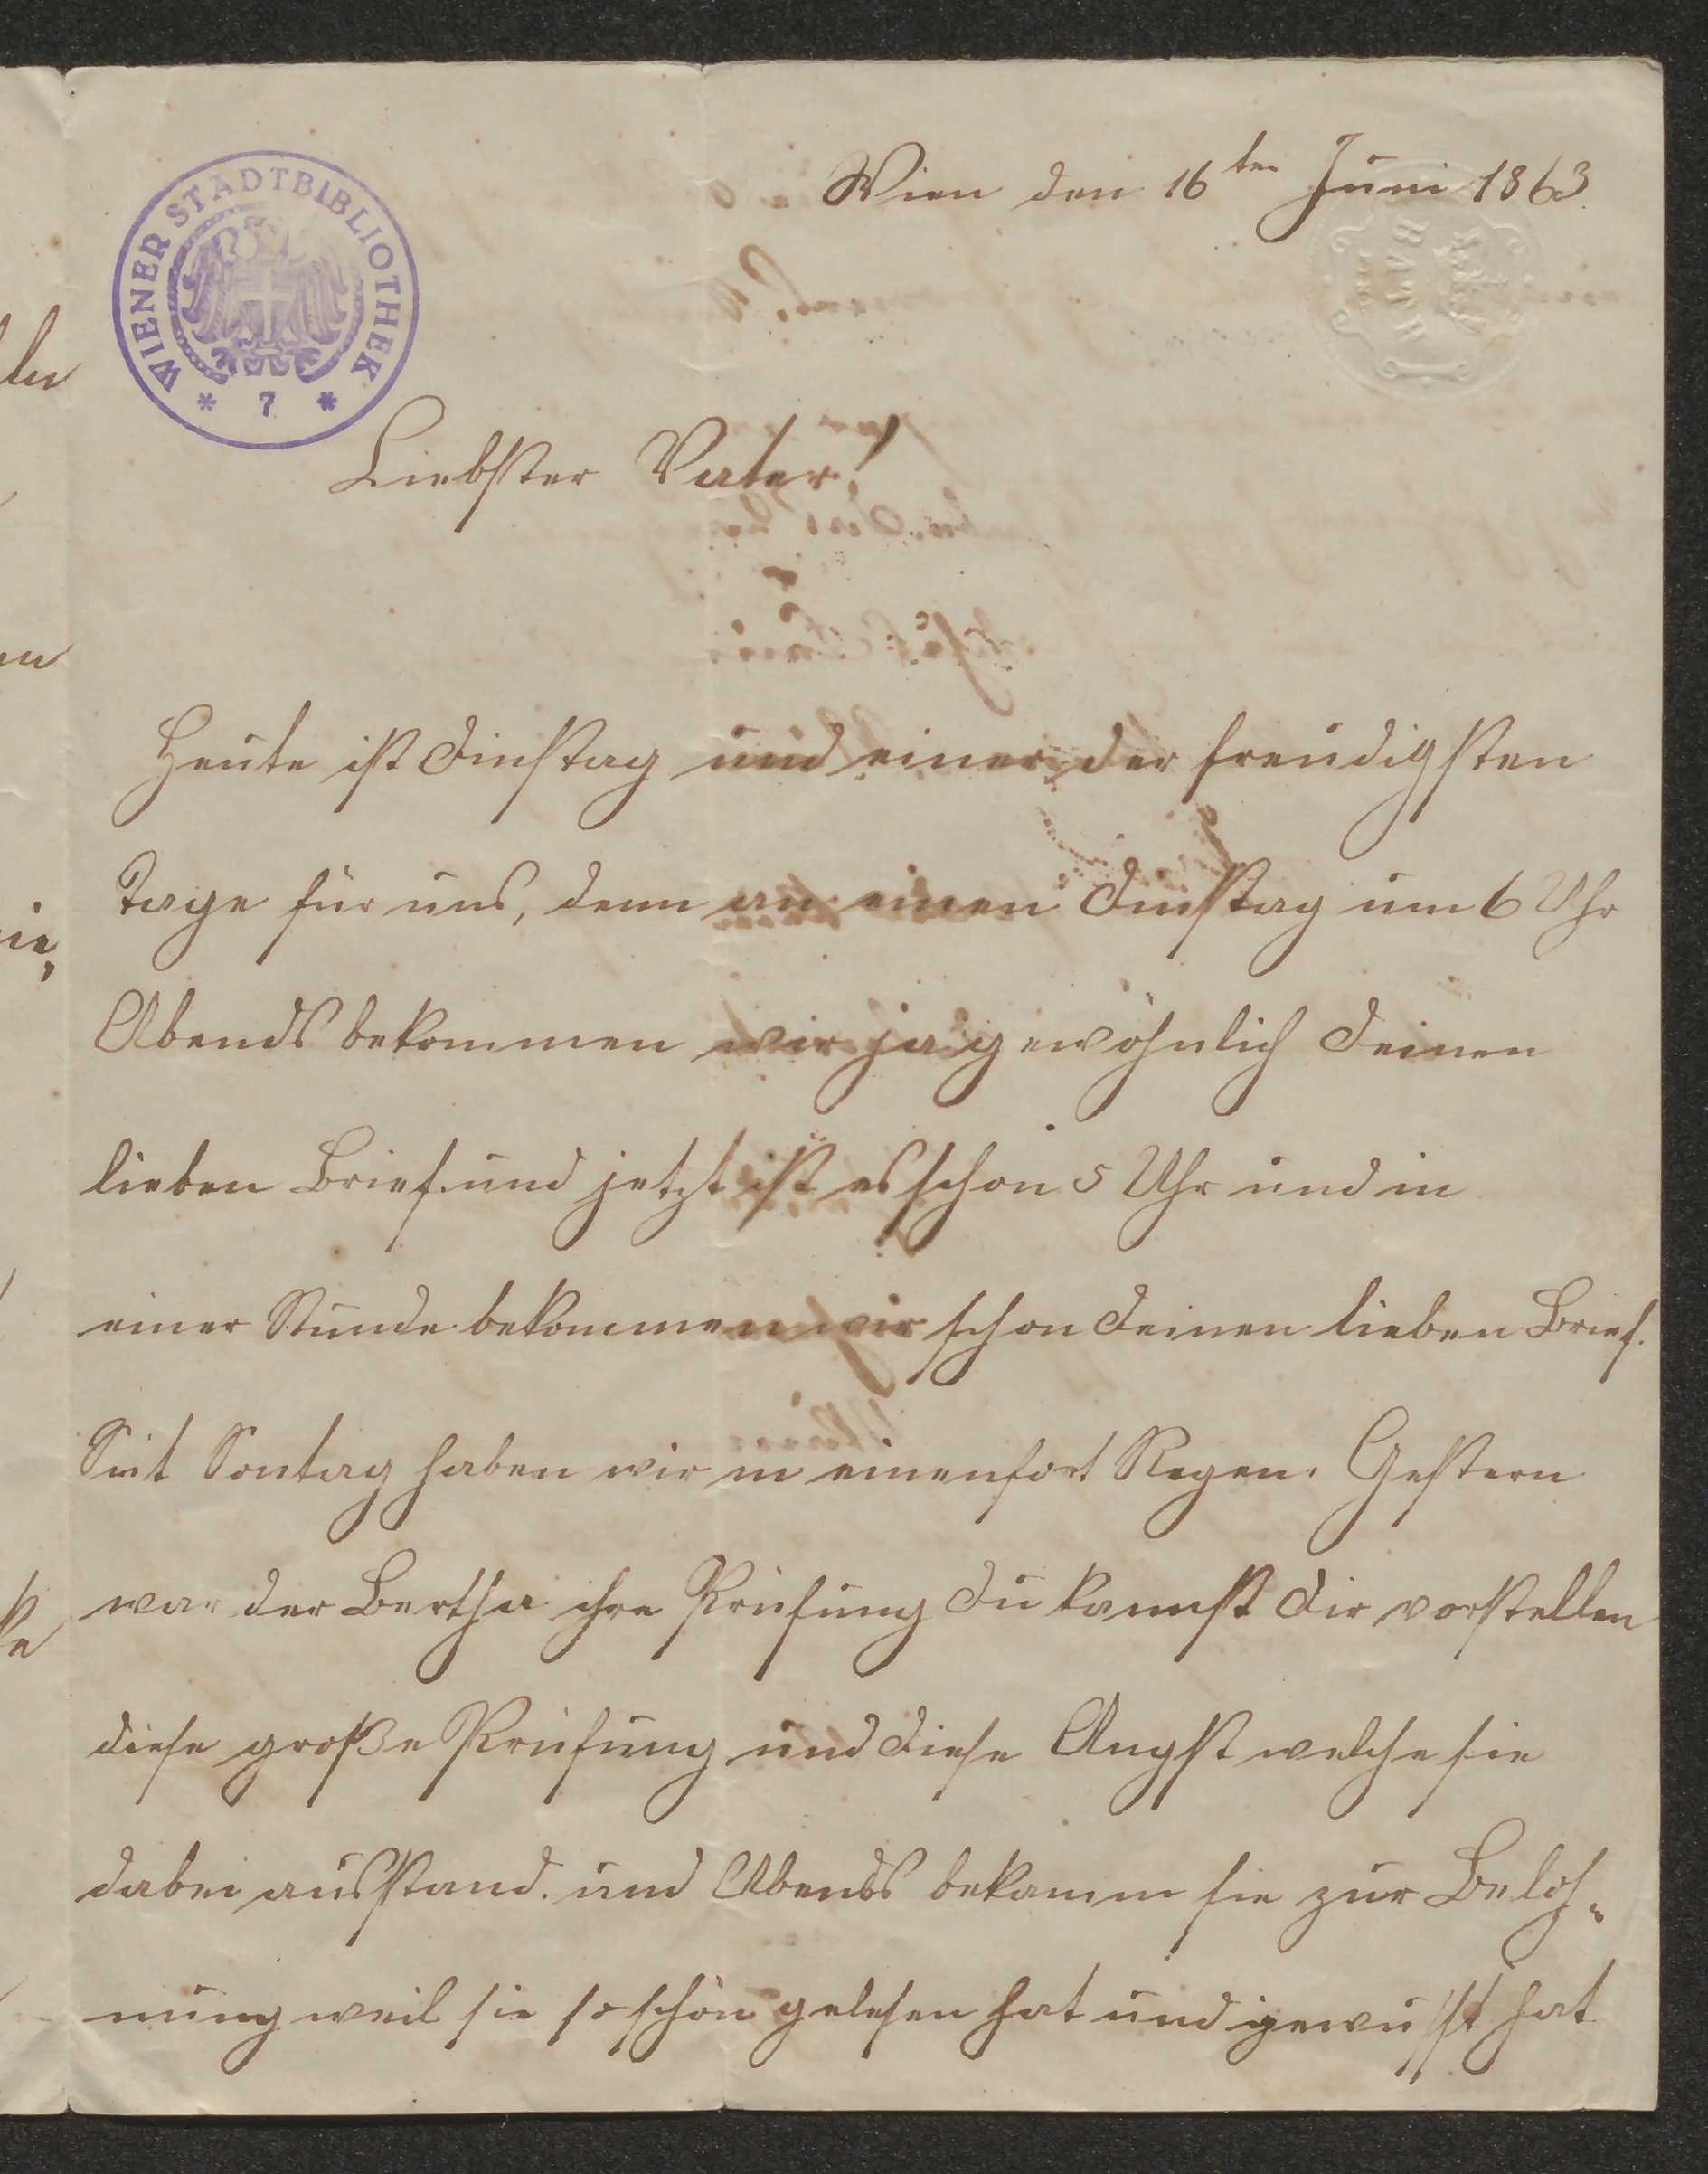 Wien den 16ten Juni 1863.
WIENER STADTBIBLIOTHEK
* 7 *
BATH
Liebster Vater!
Heute ist Dinstag und einer der freudigsten
Tage für uns, denn an einen Dinstag um 6 Uhr
Abends bekommen wir ja gewöhnlich Deinen
lieben Brief und jetzt ist es schon 5 Uhr und in
einer Stunde bekommen wir schon Deinen lieben Brief.
Seit Sontag haben wir in einenfort Regen. Gestern
war der Bertha ihre Prüfung Du kannst Dir vorstellen
diese große Prüfung und diese Angst welche sie
dabei ausstand. und Abends bekamm sie zur Beloh-
nung weil sie so schön gelesen hat und gewusst hat